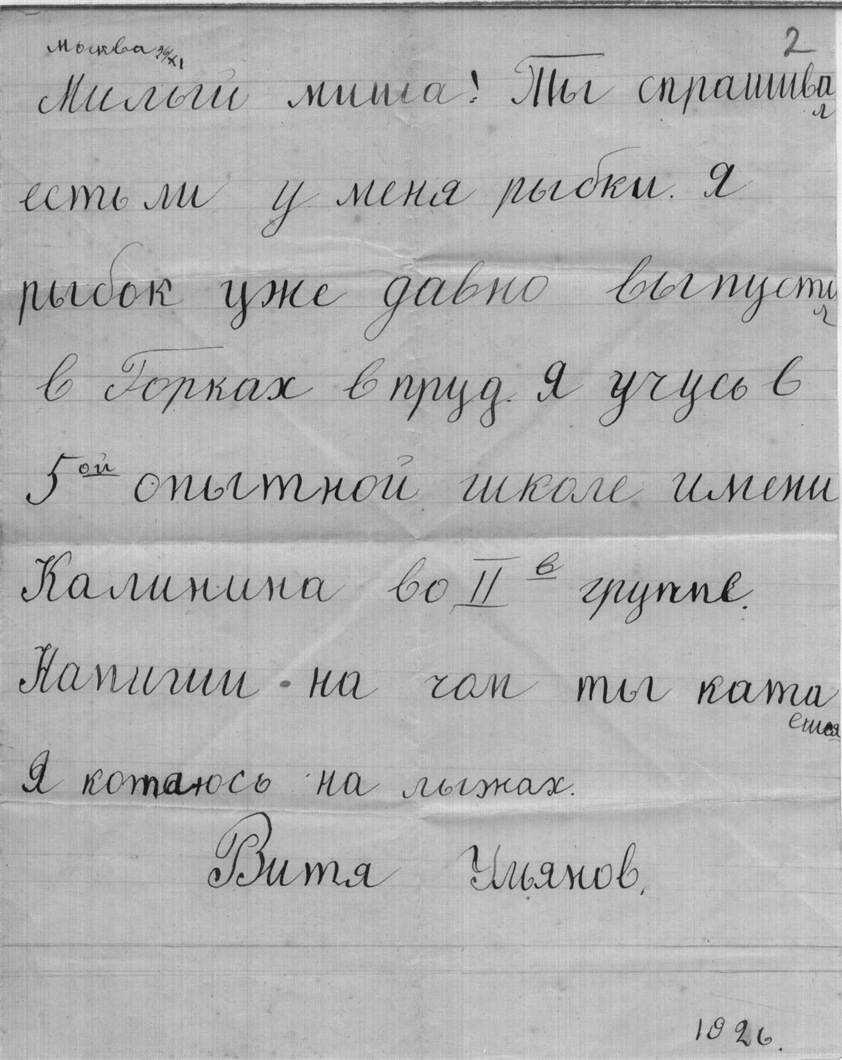 Мысква 26/XI
2
Милый миша! Ты спрашива
л
есть ли у меня рыбки. Я
рыбок уже давно выпусти
л
в Горках в пруд. Я учусь в
5ой опытной школе имени
Калинина во II в группе.
Напиши на чом ты ката
ешся
Я котаюсь на лыжах.
Витя Ульянов.
1926.